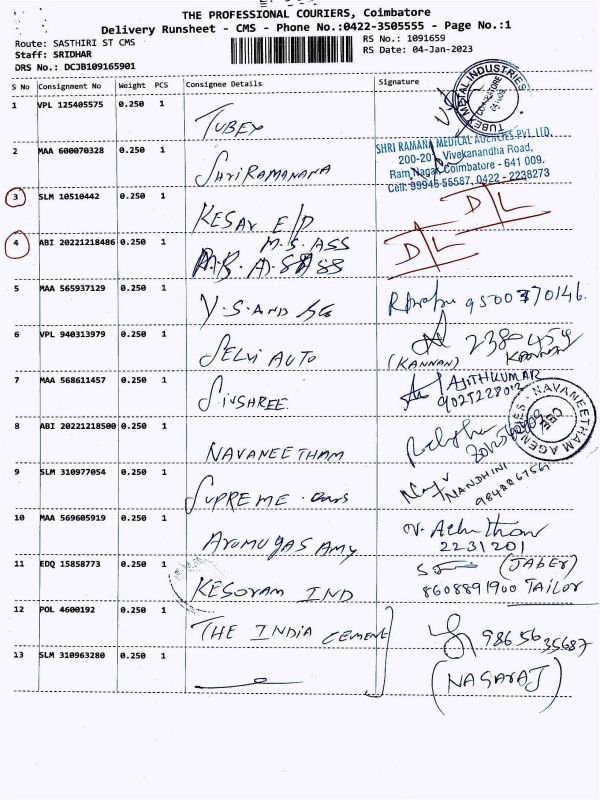 THE PROFESSIONAL COURIERS, Coimbatore
Delivery Runsheet - CMS - Phone No.:0422-3505555 - Page No.:1
Route: SASTHIRI ST CMS
Staff: SRIDHAR
DRS No.: DCJB109165901
RS No.: 1091659
RS Date: 04-Jan-2023
S No Consignment No Weight PCS Consignee Details Signature
1 VPL 125405575 0.250 1 TUBEX
TUBEX METAL INDUSTRIES
COIMBATORE
2 MAA 600070328 0.250 1 SHRI RAMANANA
SHRI RAMANA MEDICAL AGENCIES PVT. LTD.
200-201 Vivekanandha Road,
Ram Nagar, Coimbatore - 641 009.
Cell: 99946 55587, 0422 - 2238273
3 SLM 10510442 0.250 1 KESAV E/P D/L
4 ABI 20221218486 0.250 1 M.S. ASS D/L
5 MAA 565937129 0.250 1 V.S. AND SG
6 VPL 940313979 0.250 1 SELVI AUTO
(KANNAN) KANNAN
7 MAA 568611457 0.250 1 SIVSHREE AJITHKUMAR
8 ABI 20221218500 0.250 1 NAVANEETHAM
NAVANEETHAM AGENCIES
CBE
9 SLM 310977054 0.250 1 SUPREME
NANDHINI
10 MAA 569605919 0.250 1 ARUMUGASAMY
2231201
11 EDQ 15858773 0.250 1 KESORAM IND (JABER)
8608891900 TAILOR
12 POL 4600192 0.250 1 THE INDIA CEMENT 9865635687
13 SLM 310963280 0.250 1 (NAGARAJ)